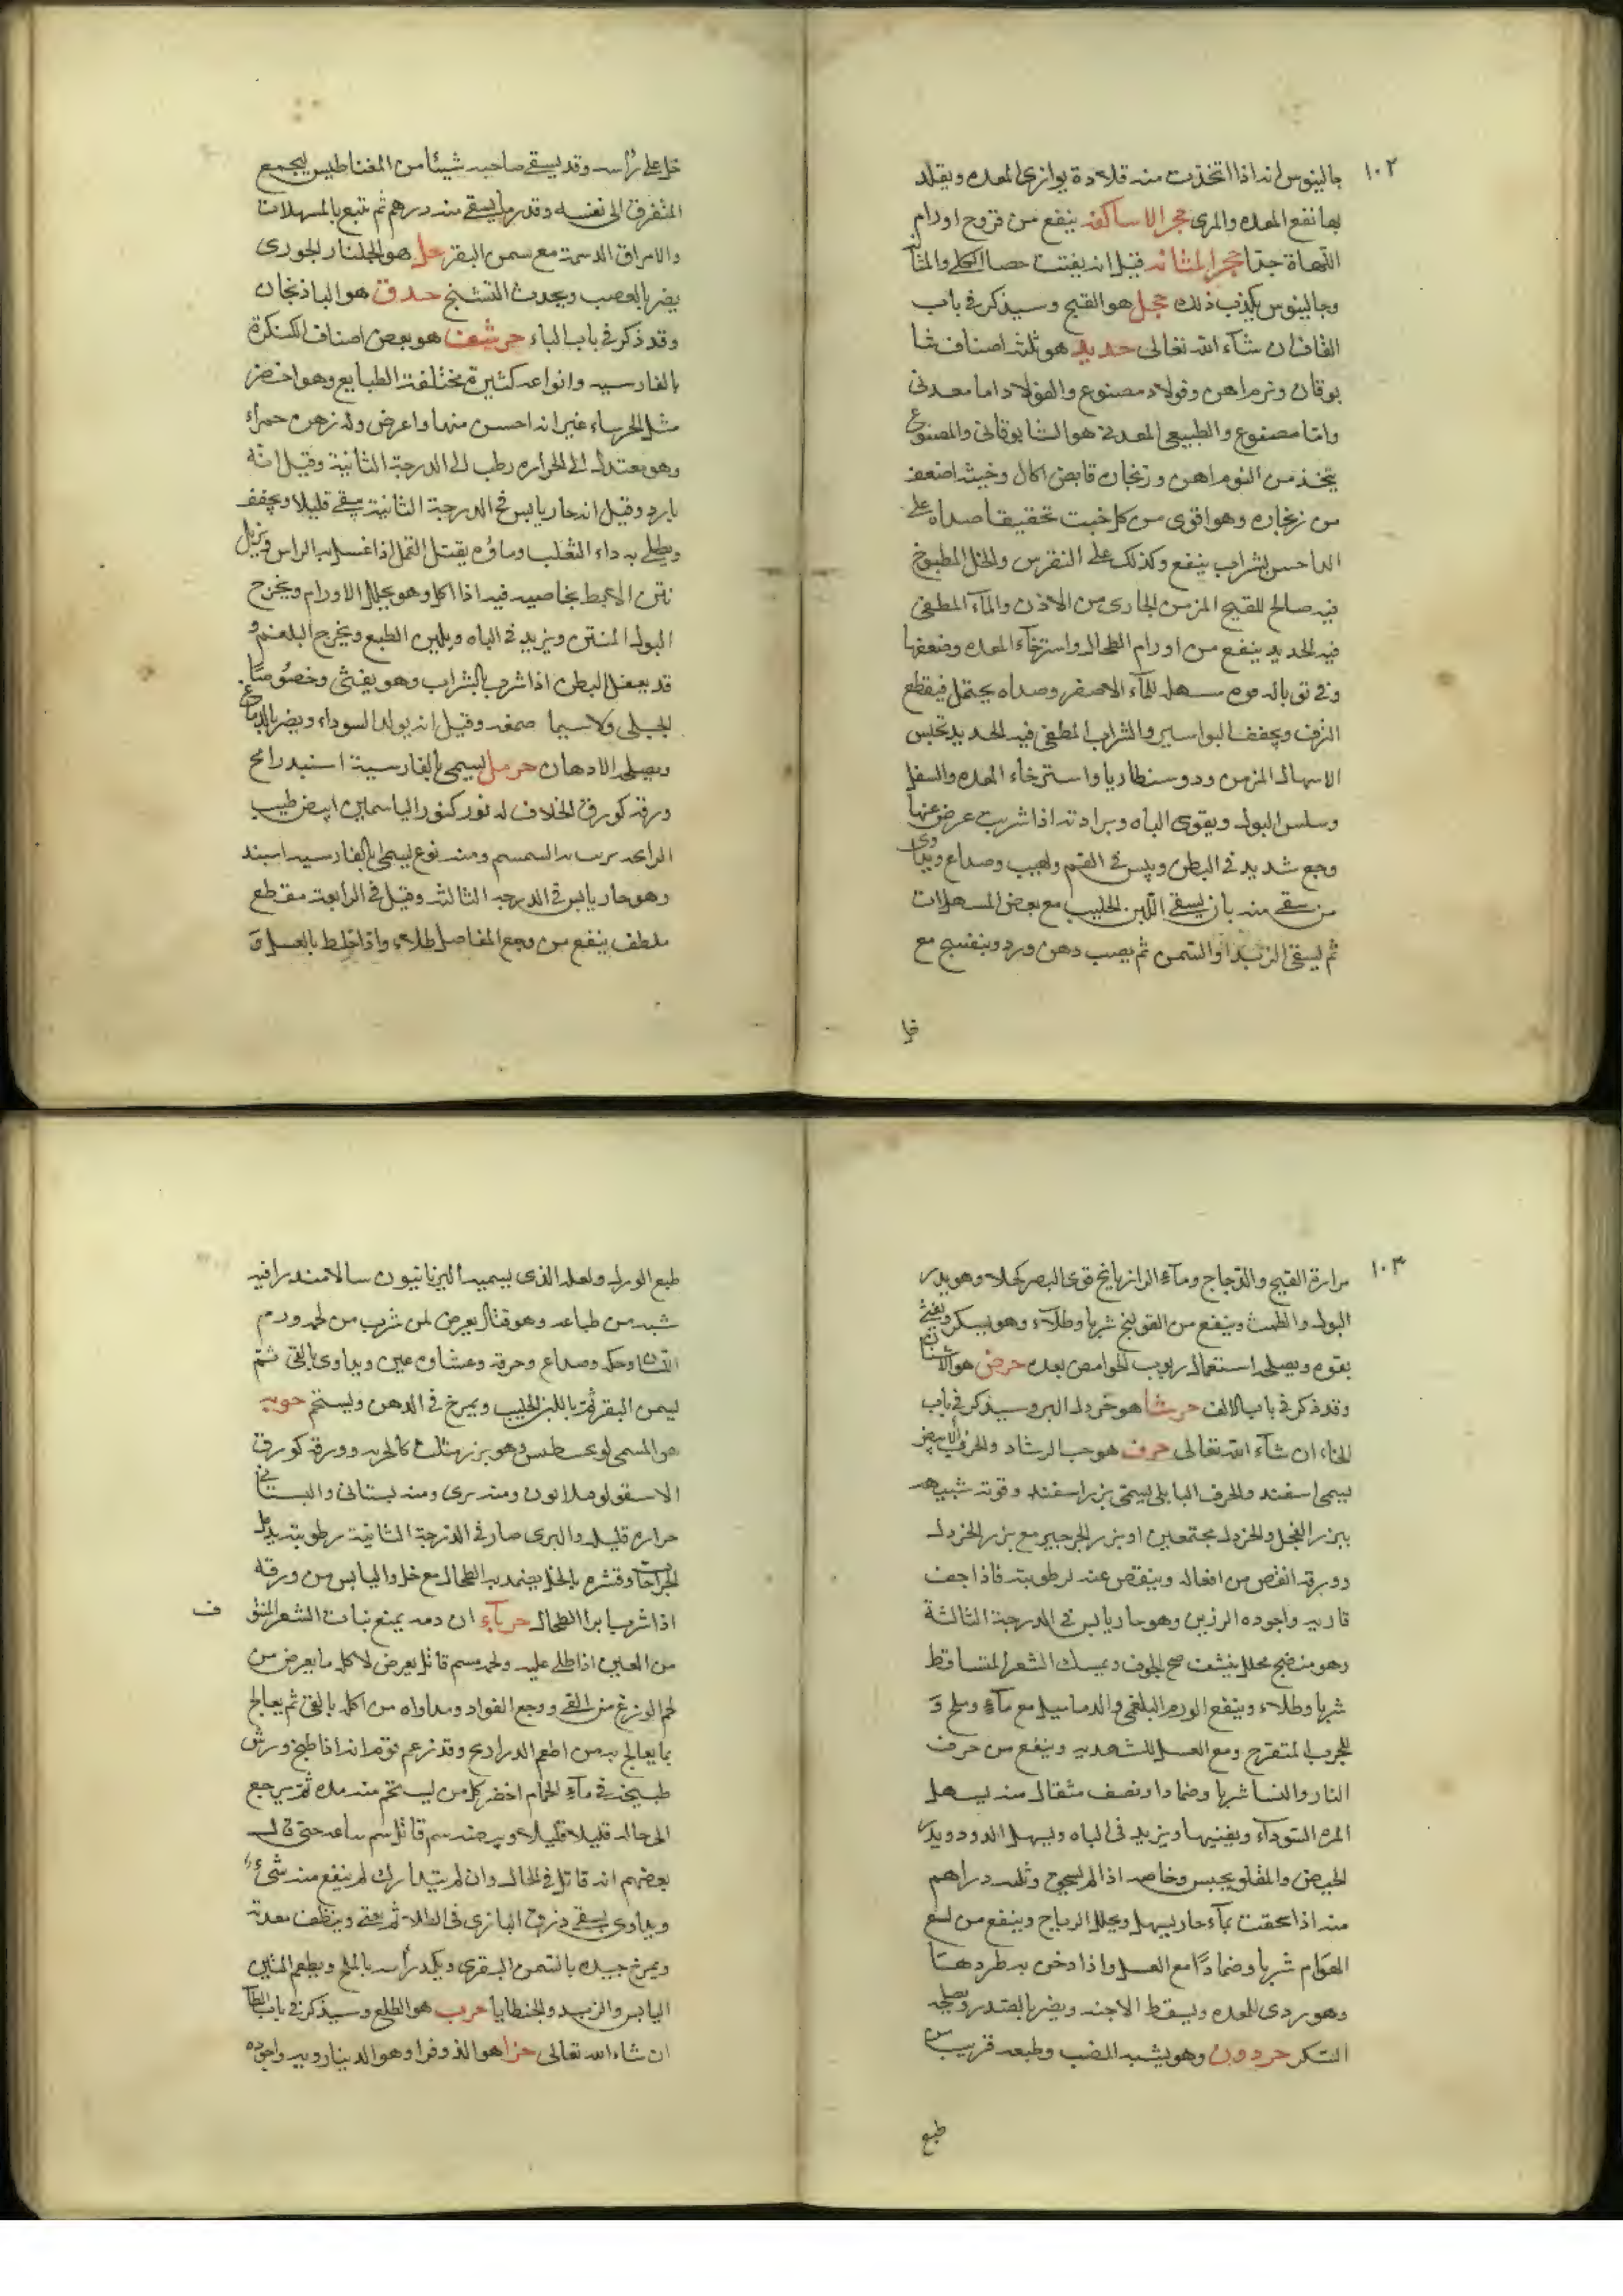 ١٠٢
جالينوس انه اذا اتخذت منه قلادة يوازى المعده ويقلد
بها نفع المعده والمرى حجر الاساكفه ينفع من قروح اورام
اللهاة جدا حجر المثانه قيل انه يفتت حصاة الكلى والمثا
وجالينوس يكذب ذلك حجل هو القبج وسيذكر فى باب
القاف ان شآء الله تعالى حديد هو ثلثه اصناف شا
بوقان ونرم اهن وفولاد مصنوع والفولاد اما معدنى
واما مصنوع والطبيعى المعدنى هو الشابوقانى والمصنوع
يتخذ من النرم اهن وزنجاره قابض اكال وخبثه اضعف
من زنجاره وهو اقوى من كل خبث تحقيقا صداه على
الداحس بشراب ينفع وكذلك على النقرس والخل المطبوخ
فيه صالح للقيح المزمن الجارى من الاذن والمآء المطفى
فيه الحديد ينفع من اورام الطحال واسترخآء المعده وضعفها
وفى توباله قوه مسهله للمآء الاصفر وصداه يحتمل فيقطع
النزف ويجفف البواسير والشراب المطفى فيه الحديد يحبس
الاسهال المزمن ودوسنطاريا واسترخاء المعده والسفل
وسلس البول ويقوى الباه وبرادته اذا شربت عرض عنها
وجع شديد فى البطن ويبس فى الفم ولهيب وصداع ويداوى
من سقى منه بان يسقى اللبن الحليب مع بعض المسهلات
ثم يسقى الزبد او السمن ثم يصب دهن ورد وبنفسج مع
خل
خل على رأسه وقد يسقى صاحبه شيئا من المغناطيس ليجمع
المتفرق الى نفسه وقدر ما يسقى منه درهم ثم تتبع بالمسهلات
والامراق الدسمة مع سمن البقر حل هو الجلنار الجورى
يضر بالعصب ويحدث التشنج حدق هو الباذنجان
وقد ذكر فى باب الباء حرشف هو بعض اصناف الكنكرة
بالفارسيه وانواعه كثيرة مختلفة الطبايع وهو اخضر
مثل الحرساء غير انه احسن منها واعرض وله زهرة حمراء
وهو معتدل الى الحراره رطب الى الدرجة الثانية وقيل انه
بارد وقيل انه حار يابس فى الدرجة الثانية يبقى قليلا ويجفف
ويطلى به داء الثعلب وماؤه يقتل القمل اذا غسل به الراس ويزيل
نتن الابط بخاصيه فيه اذا اكل وهو يحلل الاورام ويخرج
البول المنتن ويزيد فى الباه ويلين الطبع ويخرج البلغم و
قد يعقل البطن اذا شرب بالشراب وهو يغثى وخصوصا
الجبلى ولاسيما صمغه وقيل انه يولد السوداء ويضر بالدماغ
ويصلحه الادهان حرمل يسمى بالفارسية اسبدرامج
ورقه كورق الخلاف له نور كنور الياسمين ابيض طيب
الرائحه السمسم ومنه نوع يسمى بالفارسيه اسبند
وهو حار يابس فى الدرجه الثالثه وقيل فى الرابعة مقطع
ملطف ينفع من وجع المفاصل طلاء واذا خلط بالعسل و
١٠٣
مرارة القبج والدجاج ومآء الرازيانج قوى البصر كحلا وهو يدر
البول والطمث وينفع من القولنج شربا وطلآء وهو يسكر ويغثى
بقوه ويصلحه استعمال ربوب الحوامض بعده حرض هو الاشنان
وقد ذكر فى باب الالف حرشا هو خردل البر وسيذكر فى باب
الخاء ان شآء الله تعالى حرف هو حب الرشاد والحرف الابيض
يسمى اسفند والحرف البابلى يسمى بزر اسفند وقوته شبيهه
ببزر الفجل والخردل مجتمعين او بزر الجرجير مع بزر الخردل
وورقه انقص من افعاله وينقص عنه لرطوبته فاذا جف
قاربه واجوده الرزين وهو حار يابس فى الدرجة الثالثة
وهو منضج محلل ينشف الجوف ويمسك الشعر المتساقط
شربا وطلاء وينفع الورم البلغمى والدماميل مع مآء وملح و
للجرب المتقرح ومع العسل للشهديه وينفع من حرف
النار والنسا شربا وضمادا ونصف مثقال منه يسهل
المره السوداء ويفنيها ويزيد فى الباه ويسهل الدود ويدر
الحيض والمقلو يحبس وخاصه اذا لم يسحق وثلثه دراهم
منه اذا سحقت بمآء حار يسهل ويحلل الرياح وينفع من لسع
الهوام شربا وضمادا مع العسل واذا دخن به طرد هسا
وهو ردى للمعده ويسقط الاجنه ويضر بالصدر ويصلحه
السكر حردون وهو يشبه الضب وطبعه قريب من
طبع
طبع الورل ولعله الذى يسميه اليونانيون سالامندرا فيه
شبه من طباعه وهو قتال يعرض لمن شرب من لحمه ورم
اللسان وحكه وصداع وحرقه وغشاوه عين ويداوى بالقى ثم
بسمن البقر ثم باللبن الحليب ويمرخ فى الدهن ويستحم
هو المسمى وهو بزر مثلث كالحربه وورقه كورق
الاسقولوفندلانون ومنه برى ومنه بستانى والبستانى
حراره قليله والبرى حار فى الدرجة الثانية رطوبته يدمل
الجراحات وقشره بالخل يضمد به الطحال مع خل واليابس من ورقه
اذا شرب ابرا الطحال حربآء ان دمه يمنع نبات الشعر المنتف
من العين اذا طلى عليه ولحمه سم قاتل يعرض لاكله ما يعرض من
لحم الوزغ من القى ووجع الفواد ومداواه من اكله بالقى ثم يعالج
بما يعالج به من اطعم الدراريح وقد زعم قوم انه اذا طبخ ورش
طبيخه فى مآء الحمام اخضر كل من يستحم منه مده ثم يرجع
الى حاله قليلا قليلا وبيضه سم قاتل سم ساعه حتى قال
بعضهم انه قاتل فى الحال وان لم يتدارك لم ينفع منه شىء
ويداوى بسقى ذرق البازى فى الطلا ثم يقى وينظف معدته
ويمرخ جسده بالسمن البقرى ويكمد رأسه بالملح ويطعم التين
اليابس والزبد والجنطايا حرب هو الطلع وسيذكر فى باب الطآ
ان شاء الله تعالى حزا هو الذوفرا وهو الدينارويه واجوده